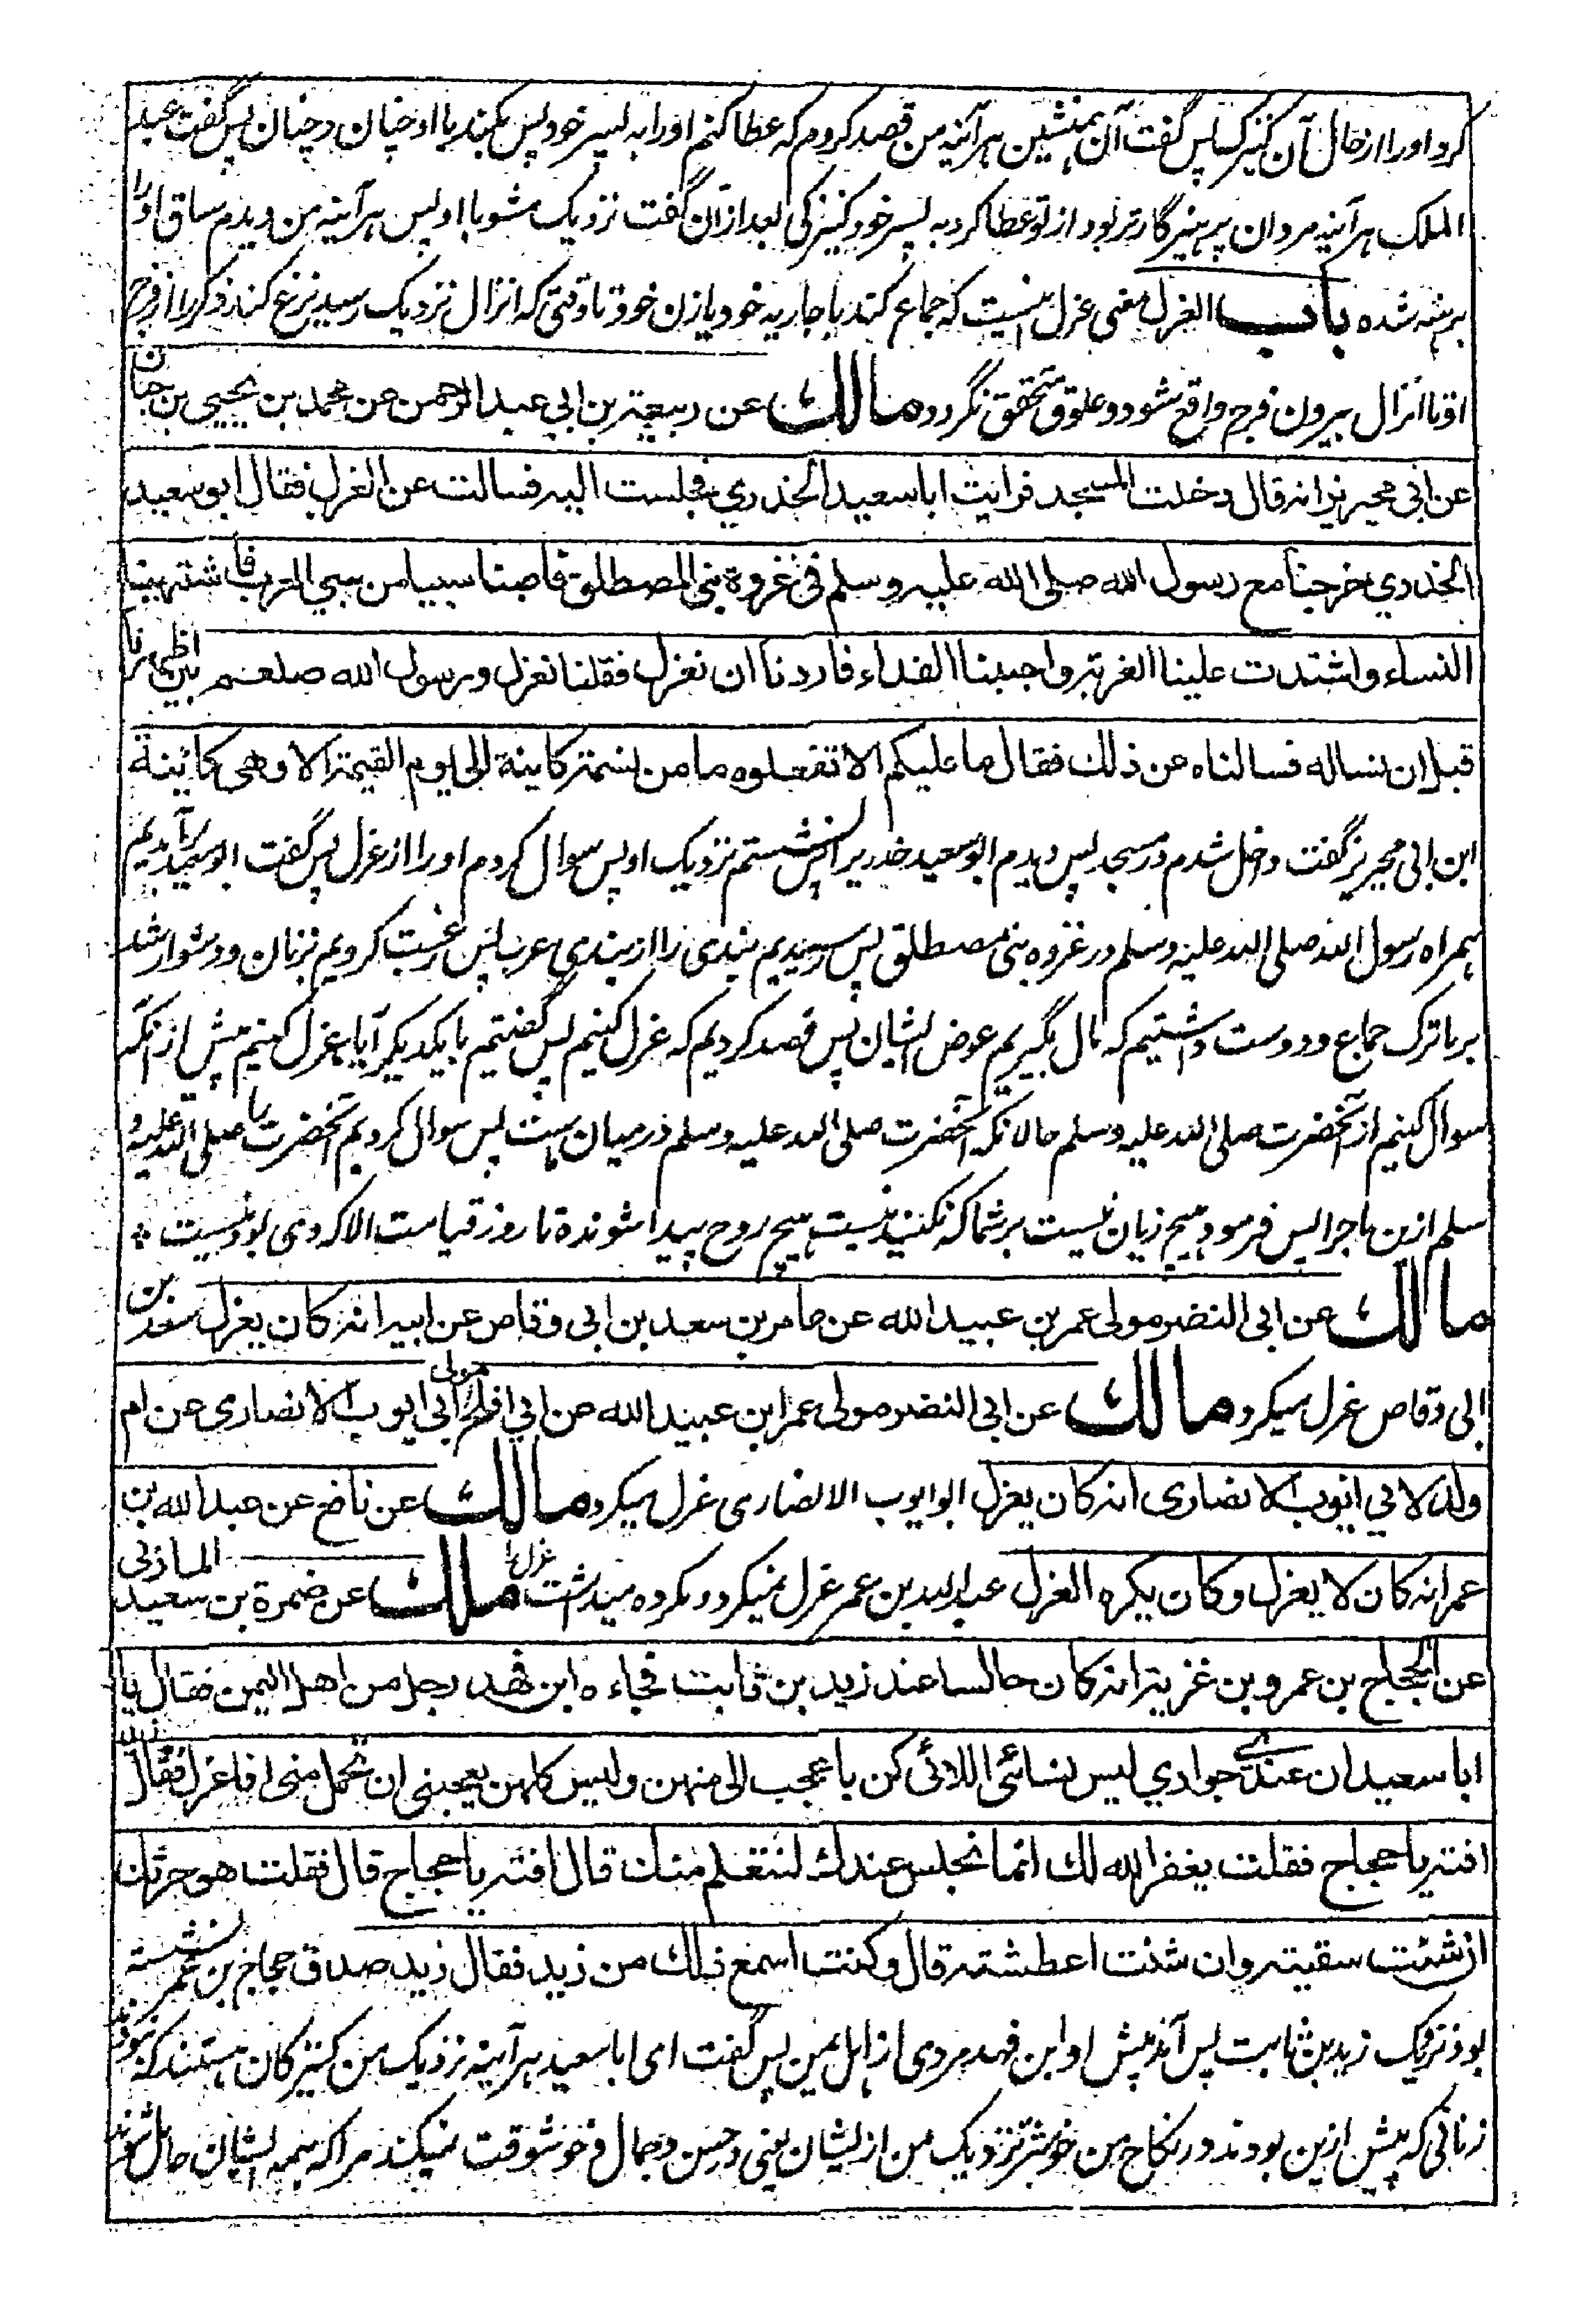 کرد او را از حال آن کنیزک پس گفت آن همنشین هر آئینه من قصد کردم که عطا کنم او را به پسر خود پس بکند با او چنان و چنان پس گفت عبد
الملک هر آئینه مروان پرهیزگارتر بود از تو عطا کرد به پسر خود کنیزکی بعد ازان گفت نزدیک مشو با او پس هر آئینه من دیدم ساق او را
برهنه شده باب العزل معنی عزل اینست که جماع کند با جاریه خود یا زن خود تا وقتی که انزال نزدیک رسید نزع کند ذکر را از فرج
او تا انزال بیرون فرج واقع شود و علوق متحقق نگردد مالك عن ربيعة بن ابي عبد الرحمن عن محمد بن يحيى بن حبان
عن ابی محیریز انه قال دخلت المسجد فرایت ابا سعيد الخدري فجلست اليه فسالت عن العزل فقال ابو سعيد
الخدري خرجنا مع رسول الله صلى الله عليه وسلم فى غزوة بنی المصطلق فاصبنا سبيا من سبي العرب فاشتهينا
النساء واشتدت علينا العزبة واحببنا الفداء فاردنا ان نعزل فقلنا نعزل ورسول الله صلعم بين اظهرنا
قبل ان نساله فسالناه عن ذلك فقال ما عليكم الا تفعلوه ما من نسمة كاينة الى يوم القيمة الا وهى كائنة
ابن ابی محیریز گفت داخل شدم در مسجد پس دیدم ابو سعید خدری را پس نشستم نزدیک او پس سوال کردم او را از عزل پس گفت ابو سعید برآمدیم
همراه رسول الله صلی الله علیه وسلم در غزوه بنی مصطلق پس رسیدیم بندی را از بندی عرب پس رغبت کردیم بزنان و دشوار شد
بر ما ترک جماع و دوست داشتیم که مال بگیریم عوض ایشان پس قصد کردیم که عزل کنیم پس گفتیم با یکدیگر آیا عزل کنیم پیش ازانکه
سوال کنیم از آنحضرت صلی الله علیه وسلم حالانکه آنحضرت صلی الله علیه وسلم درمیان هست پس سوال کردیم آنحضرت را صلی الله علیه و
سلم ازین ماجرا پس فرمود هیچ زیان نیست بر شما که نکنید نیست هیچ روح پیدا شونده تا روز قیامت الا که وی بودنیست
مالك عن ابى النضر مولى عمر بن عبيد الله عن عامر بن سعد بن ابى وقاص عن ابيه انه كان يعزل سعد بن
ابی وقاص عزل میکرد مالك عن ابى النضر مولى عمر ابن عبيد الله عن ابي افلح مولى ابي ايوب الانصارى عن ام
ولد لابي ايوب الانصارى انه كان يعزل ابو ایوب الانصاری عزل میکرد مالك عن نافع عن عبد الله بن
عمر انه كان لا يعزل وكان يكره العزل عبد الله بن عمر عزل نمیکرد و مکروه میداشت عزل را مالك عن ضمرة بن سعيد المازنى
عن الحجاج بن عمرو بن غزية انه كان جالسا عند زيد بن ثابت فجاءه ابن فهد رجل من اهل اليمن فقال يا
ابا سعيد ان عندي جواري ليس نسائى اللائى كن باعجب الى منهن وليس كلهن يعجبنى ان تحمل منى افاعزل فقال زيد
افته يا حجاج فقلت يغفر الله لك انما نجلس عندك لنتعلم منك قال افته يا حجاج قال فقلت هو حرثك
ان شئت سقيته وان شئت اعطشته قال وكنت اسمع ذلك من زيد فقال زيد صدق حجاج بن عمر نشسته
بود نزدیک زید بن ثابت پس آمد پیش او ابن فهد مردی از اهل یمن پس گفت ای ابا سعید هر آئینه نزدیک من کنیزکان هستند که نبودند
زنانی که پیش ازین بودند در نکاح من خوشتر نزدیک من از ایشان یعنی در حسن و جمال و خوشوقت نمیکند مرا که همه ایشان حامل شوند